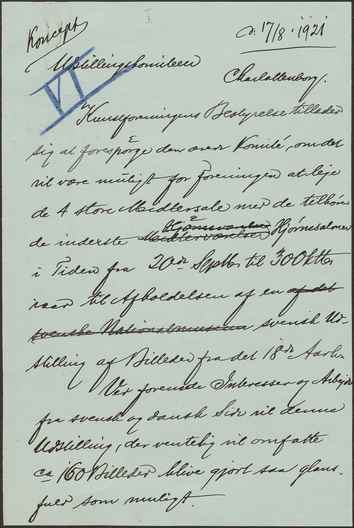 Koncept
d. 17/8. 1921
Udstillingskomiteen
Charlottenborg.
VI
Kunstforeningens Bestyrelse tillader
sig at forespörge den ærede Komité, om det
vil være muligt for Foreningen at leje
de 4 store Midtersale med de tilhören
de inderste Hjörnesaloner
i Tiden fra 20de Septb. til 30 Oktb.
naar til Afholdelsen af en af det
svenske Nationalmuseum svensk Ud-
stilling af Billeder fra det 18de Aarh.
Ved forenede Interesser og Arbejde
fra svensk og dansk Side vil denne
Udstilling, der ventelig vil omfatte
ca 160 Billeder blive gjort saa glans-
fuld som muligt.